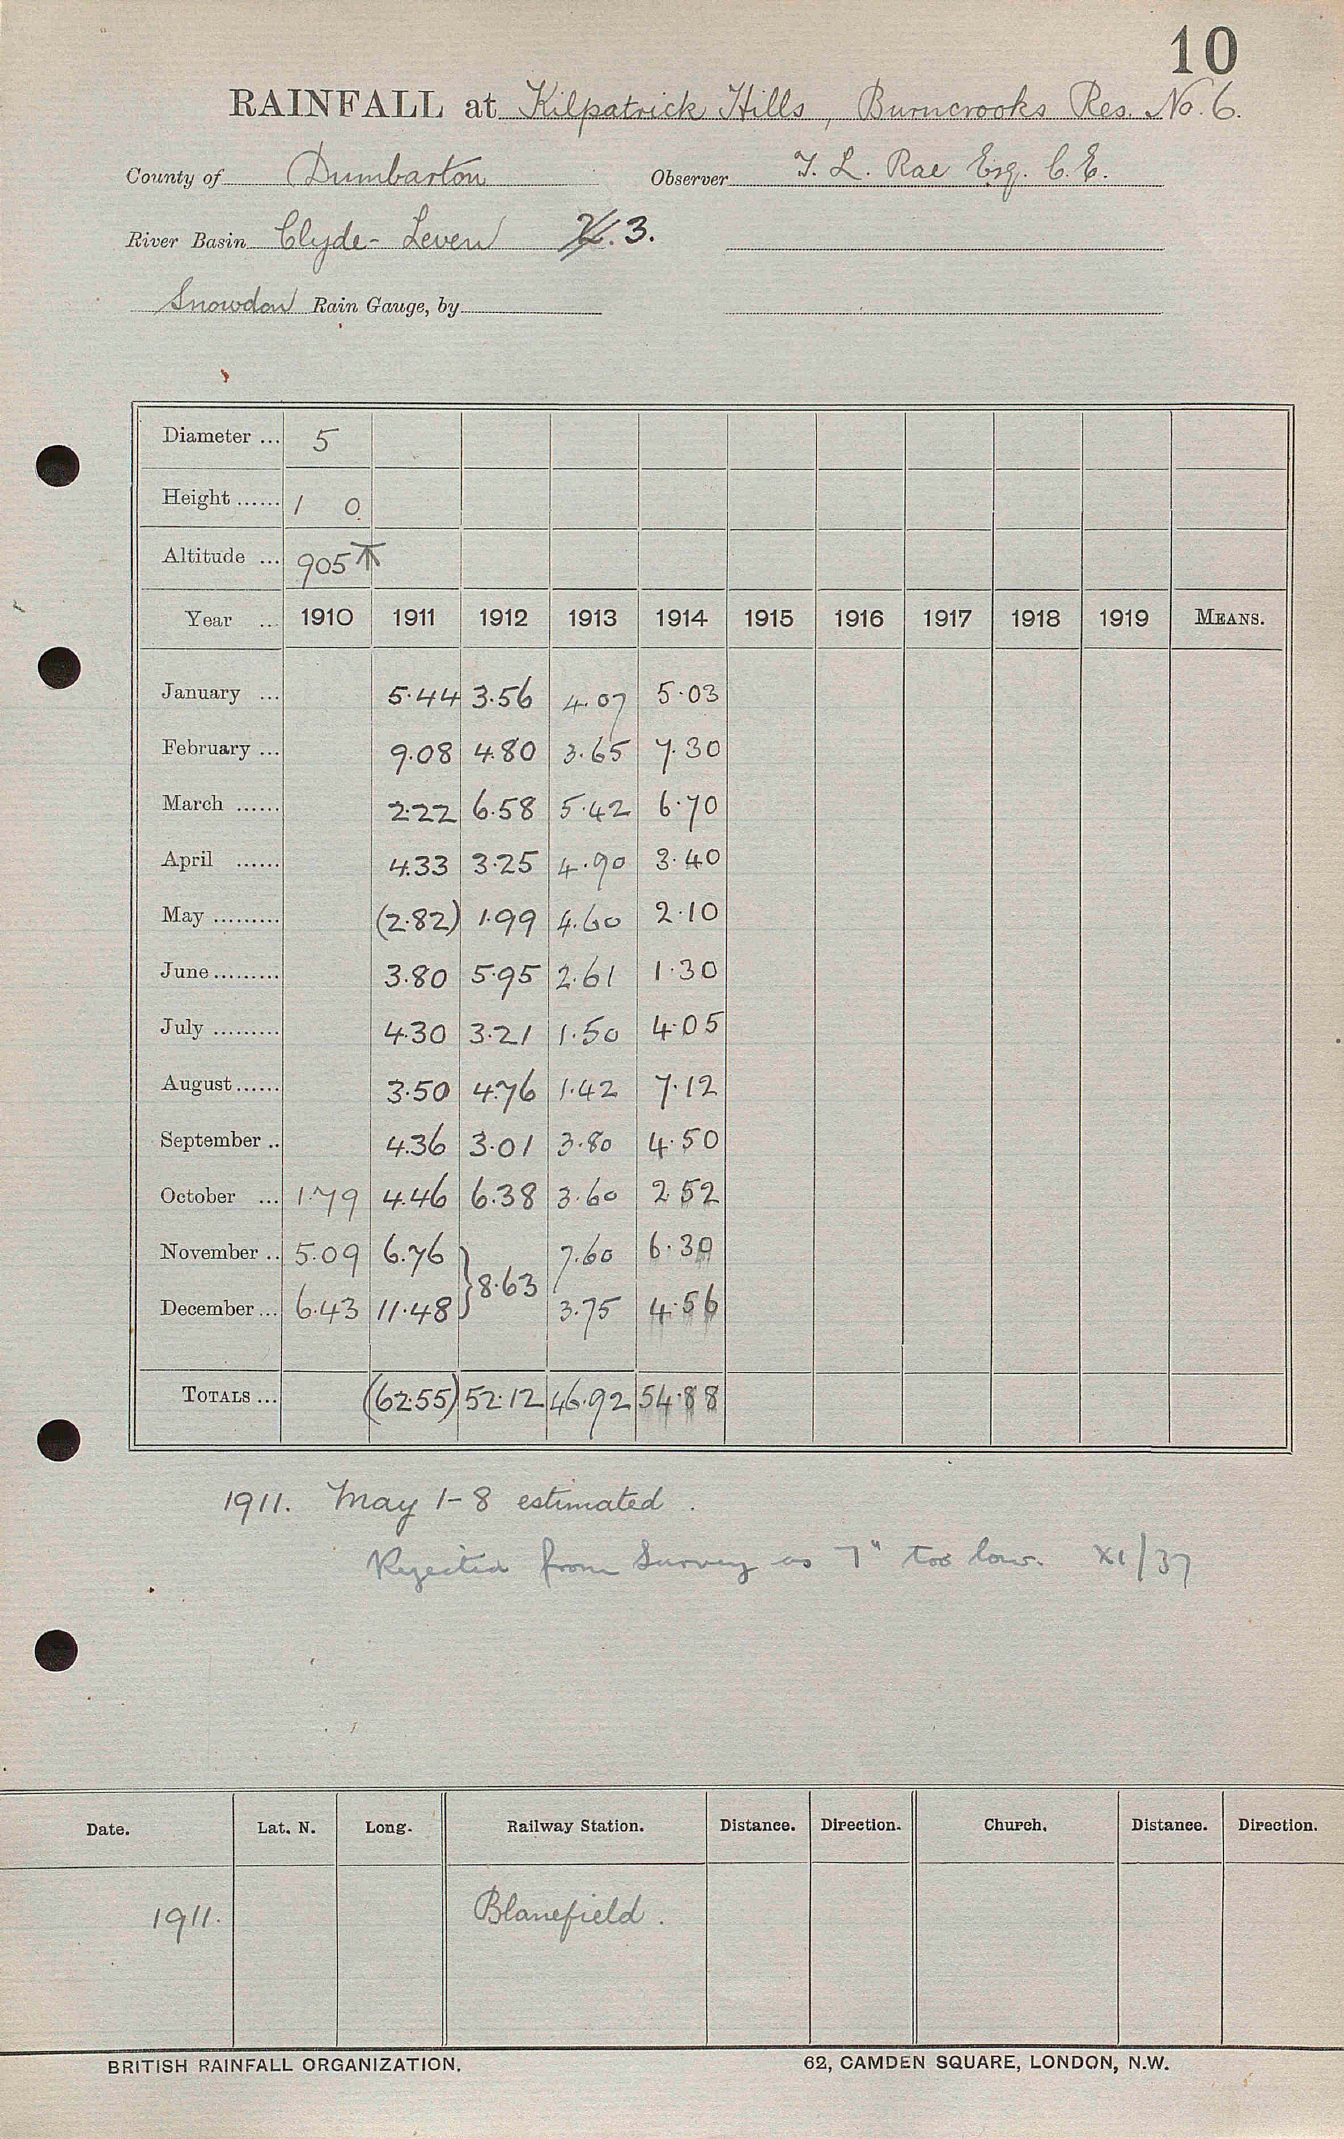 10
RAINFALL at Kilpatrick Hills, Burncrooks Res. No. 6.
County of Dumbarton Observer T. L. Rae Esq. C.E.
River Basin Clyde-Leven 3.
Snowdon Rain Gauge, by
Diameter ... 5
Height ...... 1 0
Altitude ... 905
Year ... 1910 1911 1912 1913 1914 1915 1916 1917 1918 1919 MEANS.
January ... 5.44 3.56 4.07 5.03
February ... 9.08 4.80 3.65 7.30
March ...... 2.22 6.58 5.42 6.70
April ...... 4.33 3.25 4.90 3.40
May ......... (2.82) 1.99 4.60 2.10
June ......... 3.80 5.95 2.61 1.30
July ......... 4.30 3.21 1.50 4.05
August ...... 3.50 4.76 1.42 7.12
September .. 4.36 3.01 3.80 4.50
October ... 1.79 4.46 6.38 3.60 2.52
November .. 5.09 6.76 7.60 6.30
} 8.63
December ... 6.43 11.48 3.75 4.56
TOTALS ... (62.55) 52.12 46.92 54.88
1911. May 1-8 estimated.
Rejected from Survey as 7" too low. XI/37
Date. Lat. N. Long. Railway Station. Distance. Direction. Church. Distance. Direction.
1911. Blanefield.
BRITISH RAINFALL ORGANIZATION. 62, CAMDEN SQUARE, LONDON, N.W.